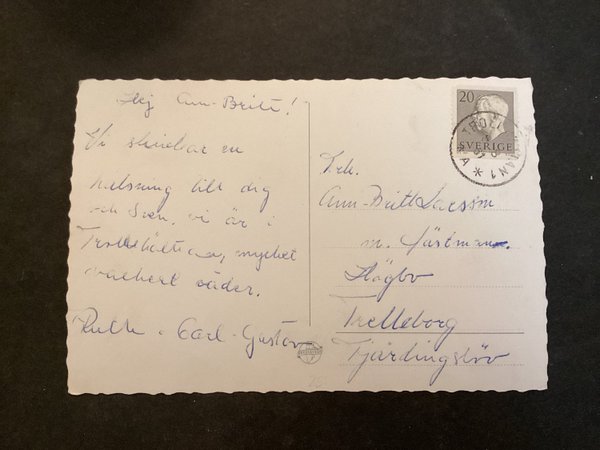 Hej Ann-Britt!
Vi skickar en
hälsning till dig
och Sven. vi är i
Trollhättan, mycket
vackert väder.
Ruth o Carl-Gustav
20
SVERIGE
Frk.
Ann-Britt Larsson
Högbo
Trelleborg
Fjärdingslöv